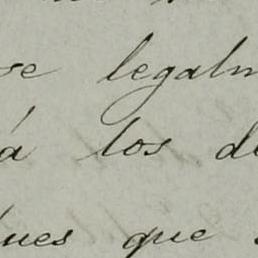 se legalm
á los de
ues que